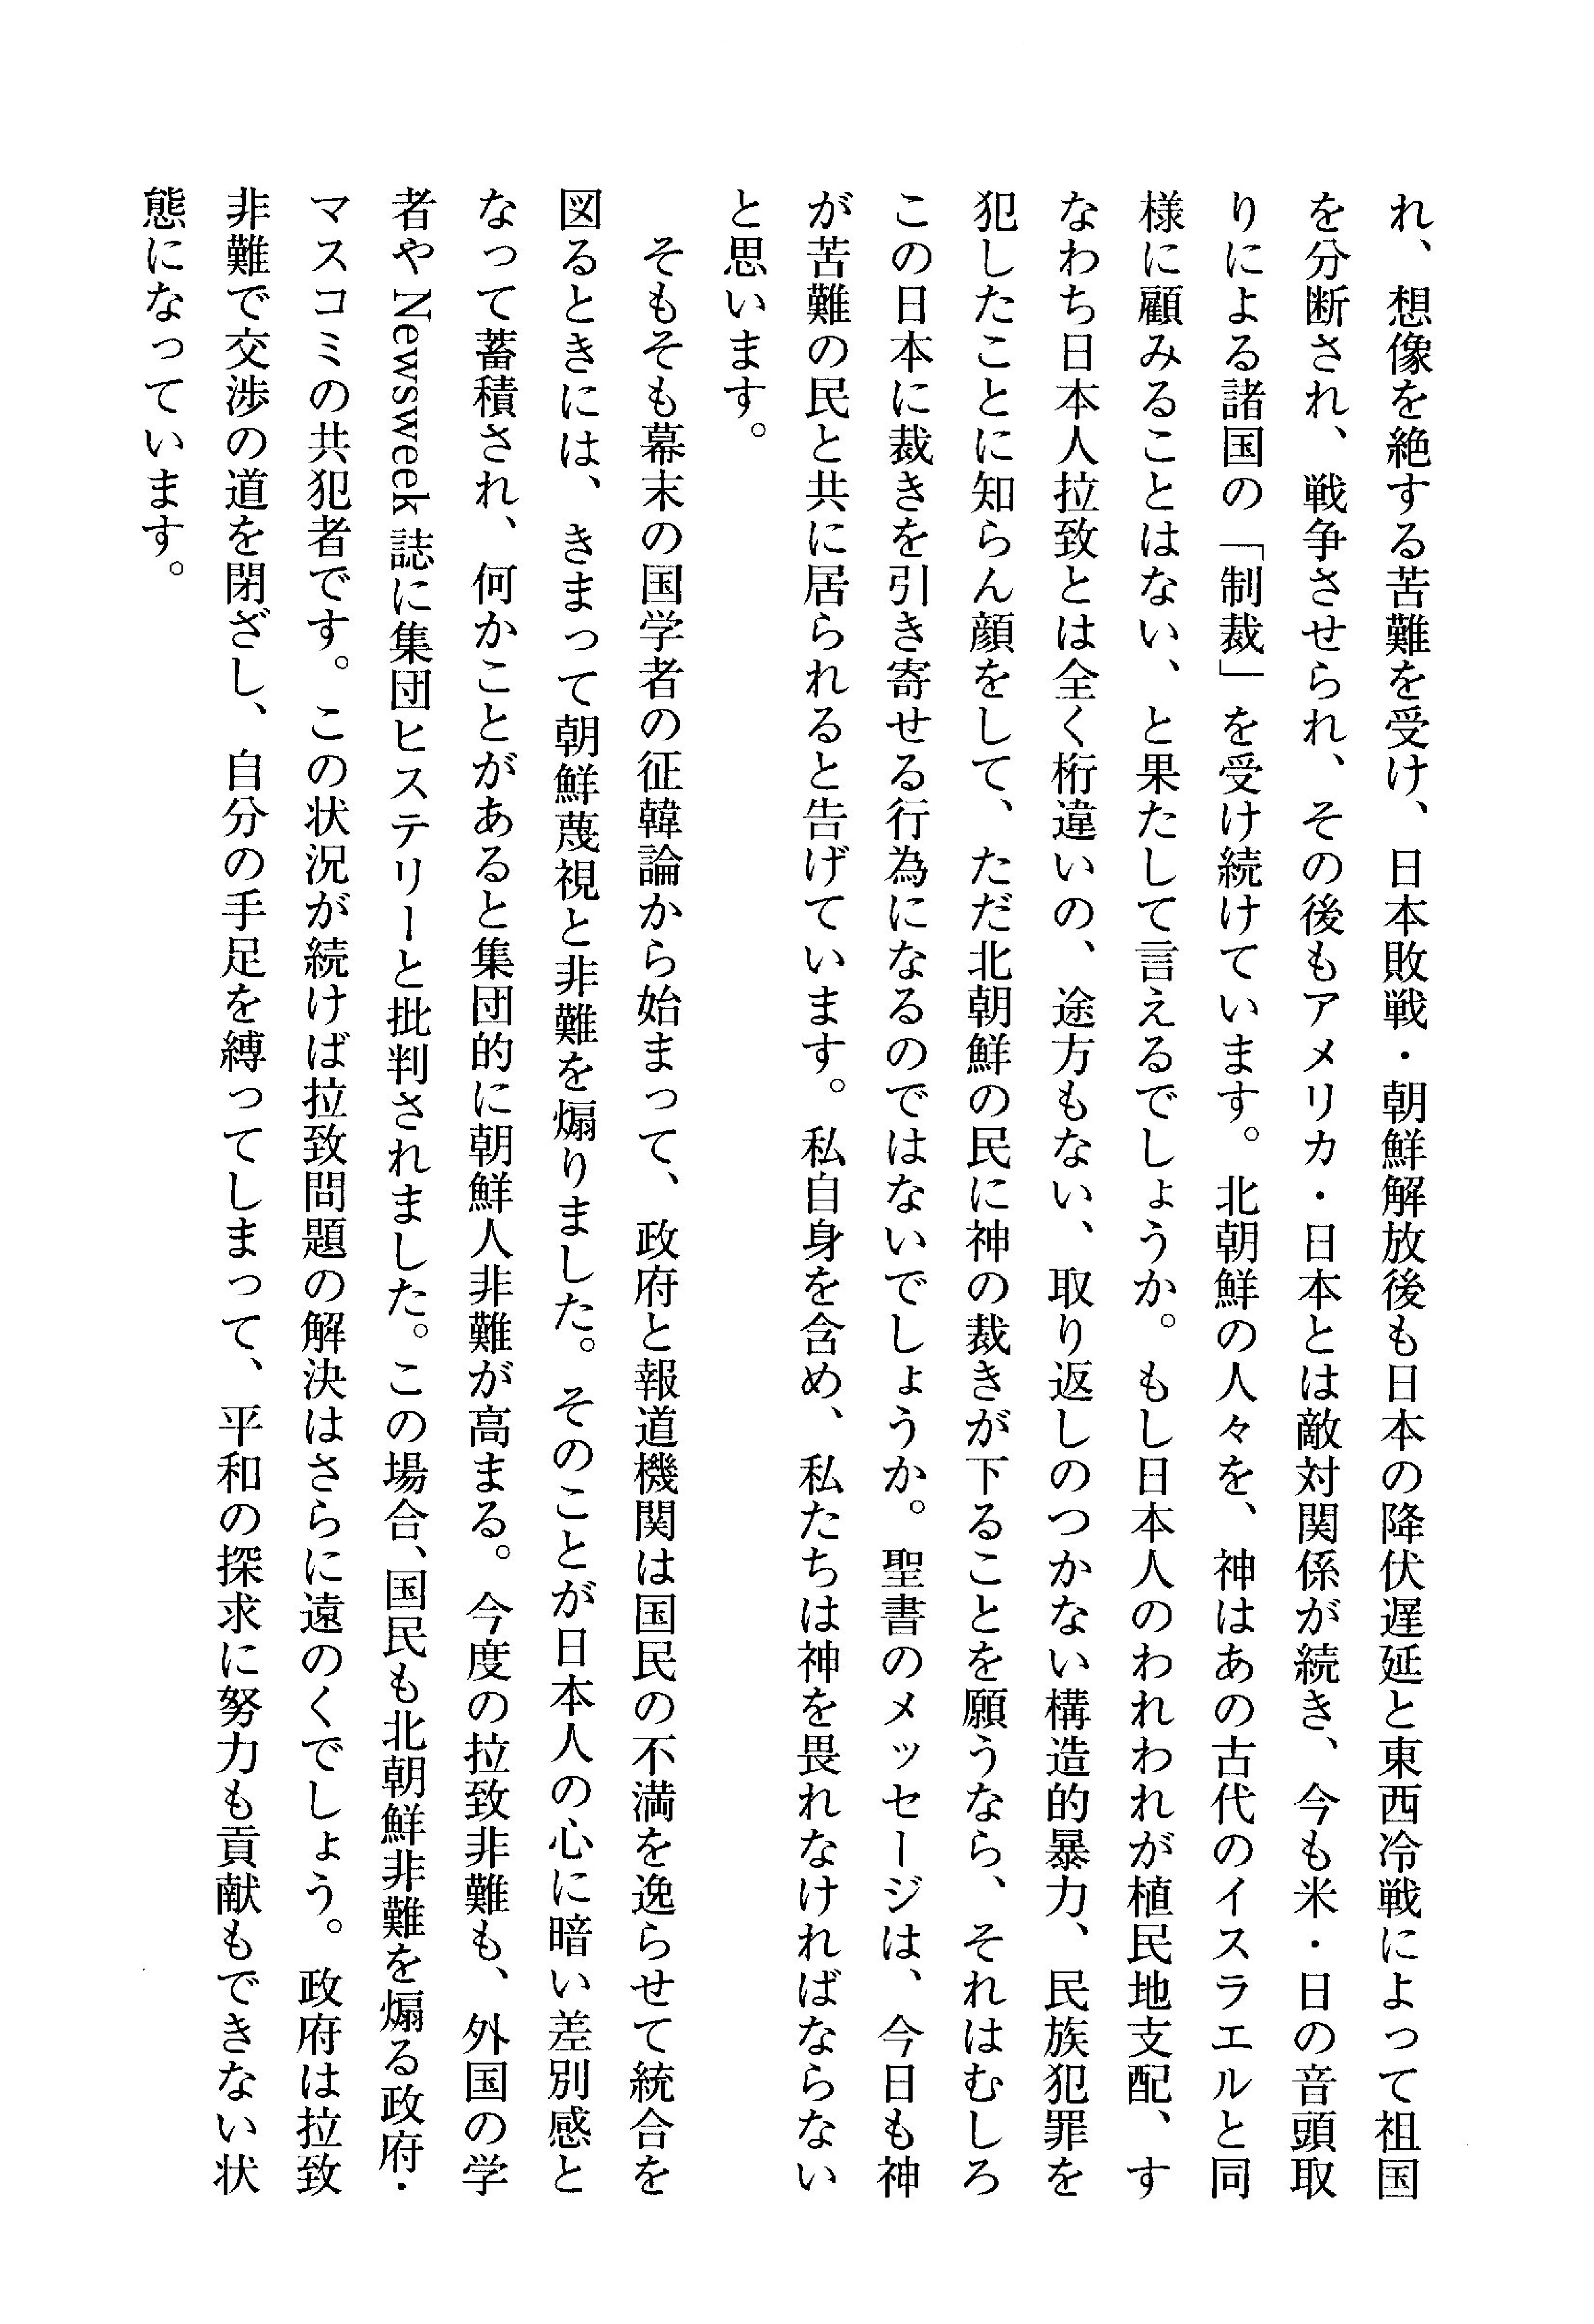 れ、想像を絶する苦難を受け、日本敗戦・朝鮮解放後も日本の降伏遅延と東西冷戦によって祖国
を分断され、戦争させられ、その後もアメリカ・日本とは敵対関係が続き、今も米・日の音頭取
りによる諸国の「制裁」を受け続けています。北朝鮮の人々を、神はあの古代のイスラエルと同
様に顧みることはない、と果たして言えるでしょうか。もし日本人のわれわれが植民地支配、す
なわち日本人拉致とは全く桁違いの、途方もない、取り返しのつかない構造的暴力、民族犯罪を
犯したことに知らん顔をして、ただ北朝鮮の民に神の裁きが下ることを願うなら、それはむしろ
この日本に裁きを引き寄せる行為になるのではないでしょうか。聖書のメッセージは、今日も神
が苦難の民と共に居られると告げています。私自身を含め、私たちは神を畏れなければならない
と思います。
そもそも幕末の国学者の征韓論から始まって、政府と報道機関は国民の不満を逸らせて統合を
図るときには、きまって朝鮮蔑視と非難を煽りました。そのことが日本人の心に暗い差別感と
なって蓄積され、何かことがあると集団的に朝鮮人非難が高まる。今度の拉致非難も、外国の学
者や Newsweek 誌に集団ヒステリーと批判されました。この場合、国民も北朝鮮非難を煽る政府・
マスコミの共犯者です。この状況が続けば拉致問題の解決はさらに遠のくでしょう。政府は拉致
非難で交渉の道を閉ざし、自分の手足を縛ってしまって、平和の探求に努力も貢献もできない状
態になっています。